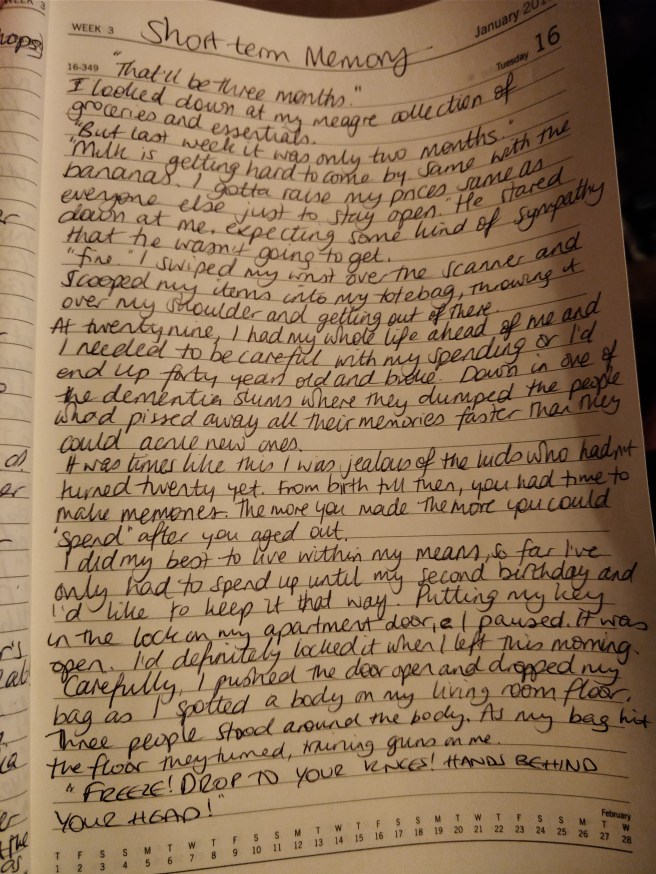 WEEK 3
Short term Memory
January 201
16-349
Tuesday 16
"That'll be three months."
I looked down at my meagre collection of
groceries and essentials.
"But last week it was only two months."
"Milk is getting hard to come by. Same with the
bananas. I gotta raise my prices same as
everyone else just to stay open." He stared
down at me, expecting some kind of sympathy
that he wasn't going to get.
"fine." I swiped my wrist over the scanner and
scooped my items into my totebag, throwing it
over my shoulder and getting out of there.
At twentynine, I had my whole life ahead of me and
I needed to be careful with my spending or I'd
end up forty years old and broke. Down in one of
the dementia slums where they dumped the people
who'd pissed away all their memories faster than they
could acrue new ones.
It was times like this I was jealous of the kids who hadn't
turned twenty yet. From birth till then, you had time to
make memories. The more you made the more you could
"spend" after you aged out.
I did my best to live within my means, so far I've
only had to spend up until my second birthday and
I'd like to keep it that way. Putting my key
in the lock on my apartment door, I paused. It was
open. I'd definitely locked it when I left this morning.
Carefully, I pushed the door open and dropped my
bag as I spotted a body on my living room floor.
Three people stood around the body. As my bag hit
the floor they turned, training guns on me.
"FREEZE! DROP TO YOUR KNEES! HANDS BEHIND
YOUR HEAD!"
February
T F S S M T W T F S S M T W T F S S M T W T F S S M T W
1 2 3 4 5 6 7 8 9 10 11 12 13 14 15 16 17 18 19 20 21 22 23 24 25 26 27 28